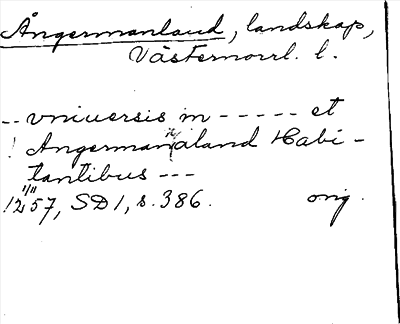 Ångermanland, landskap,
Västernorrl. l.
-- vniuersis in ----- et
! Angermanaland Habi-
tantibus ---
1/11
1257, SD 1, s. 386. orig.